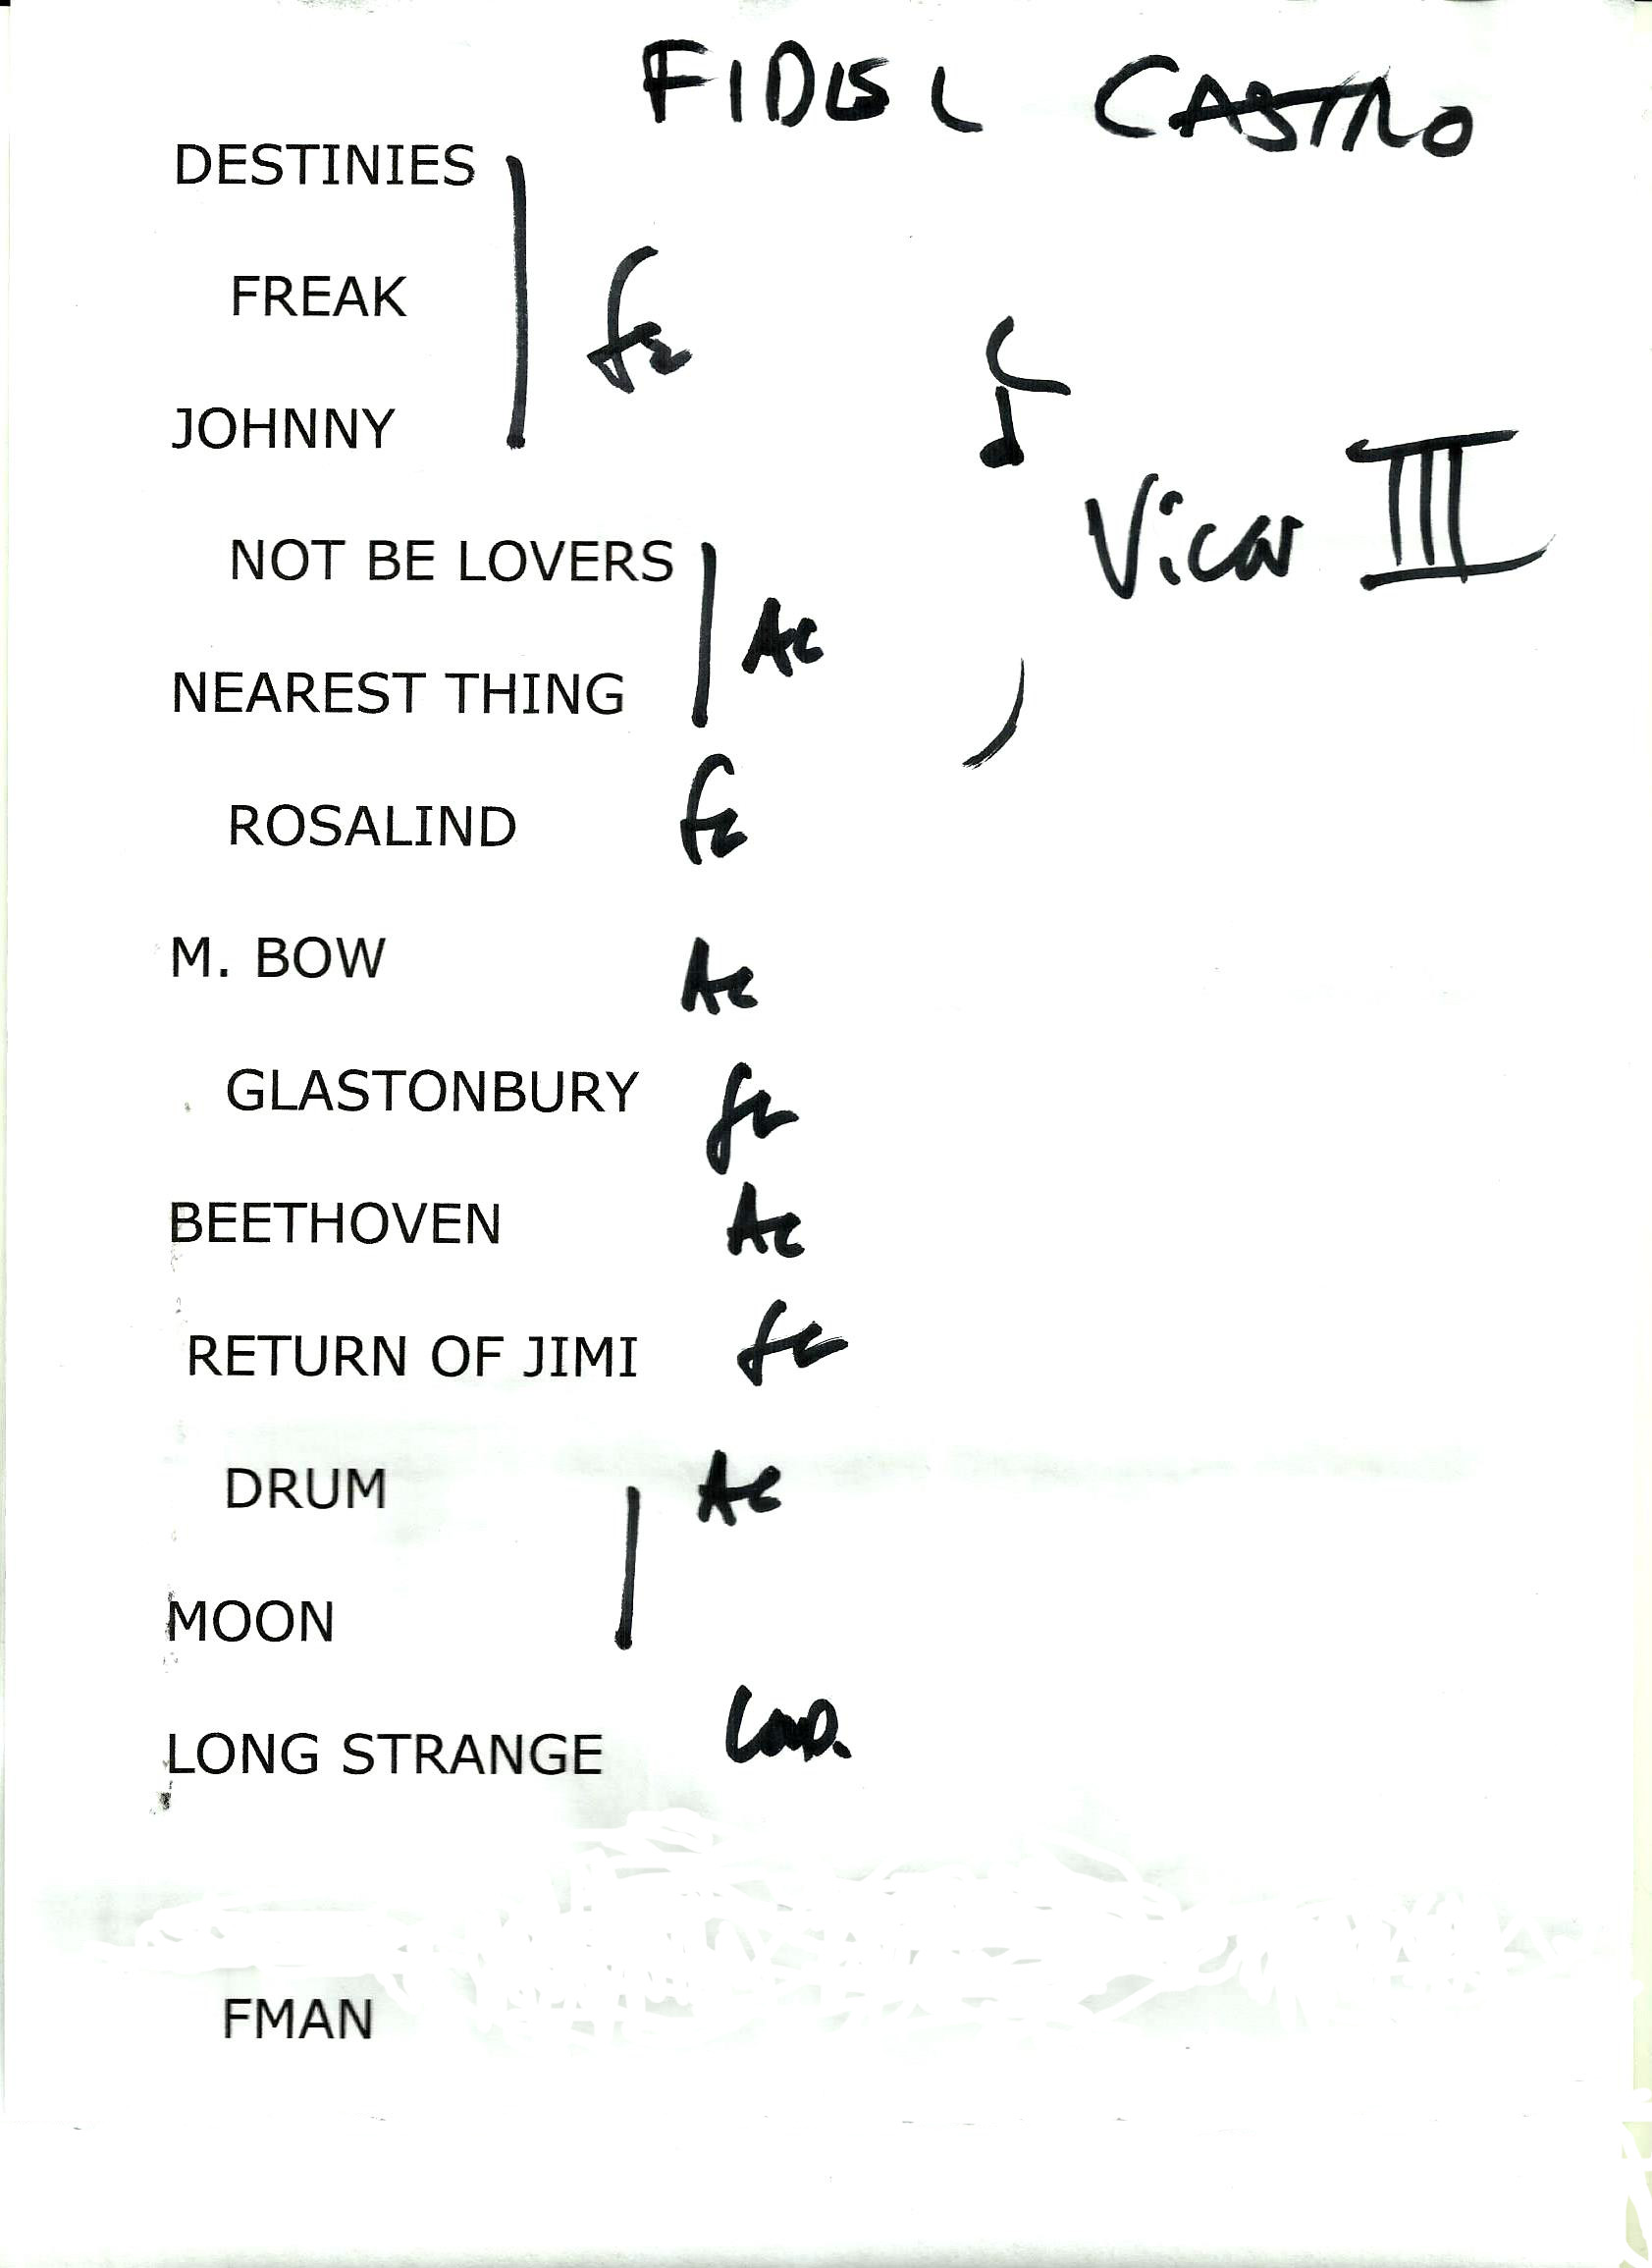 FIDEL CASTRO
DESTINIES
FREAK
JOHNNY
Vicar III
NOT BE LOVERS
Ac
NEAREST THING
ROSALIND
M. BOW Ac
GLASTONBURY
BEETHOVEN Ac
RETURN OF JIMI
DRUM Ac
MOON
LONG STRANGE
FMAN